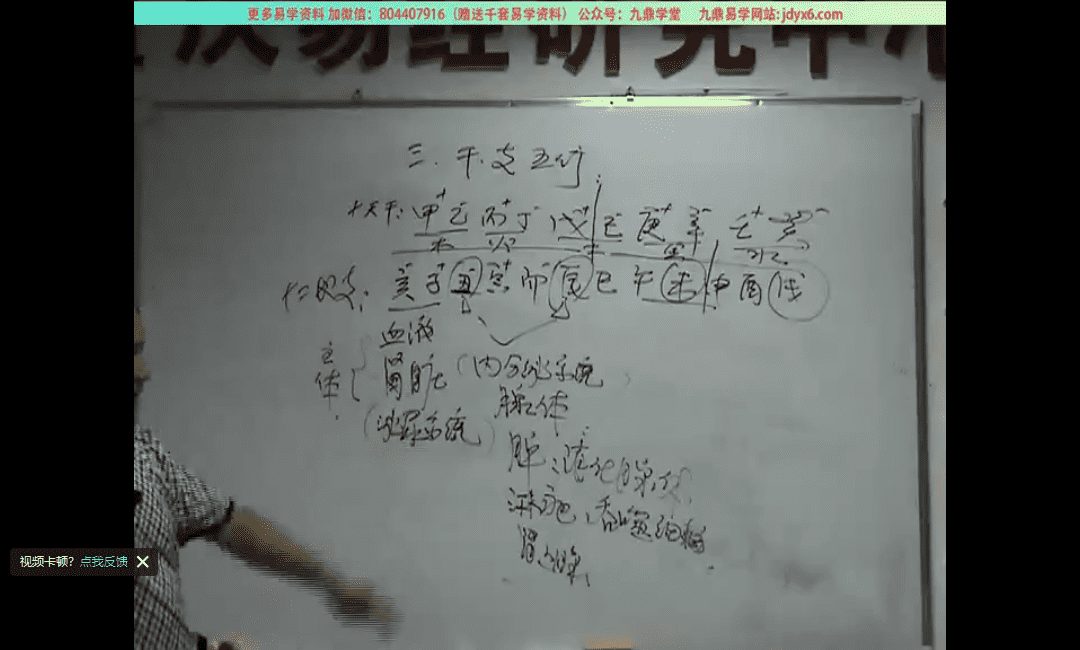 更多易学资料 加微信：804407916（赠送千套易学资料） 公众号：九鼎学堂 九鼎易学网站:jdyx6.com
易经研究中心
三. 干.支五行
十天干: 甲+ 乙- 丙+ 丁- 戊+ 己 庚+ 辛- 壬+ 癸-
木 火 土 金 水
十二地支: 亥- 子+ 丑 寅+ 卯 辰 巳 午 未 申 酉 戌
主体
血液
肾脏 (内分泌系统)
(泌尿系统) 腺体
脾:
淋巴、吞噬细胞
视频卡顿？点我反馈 ×